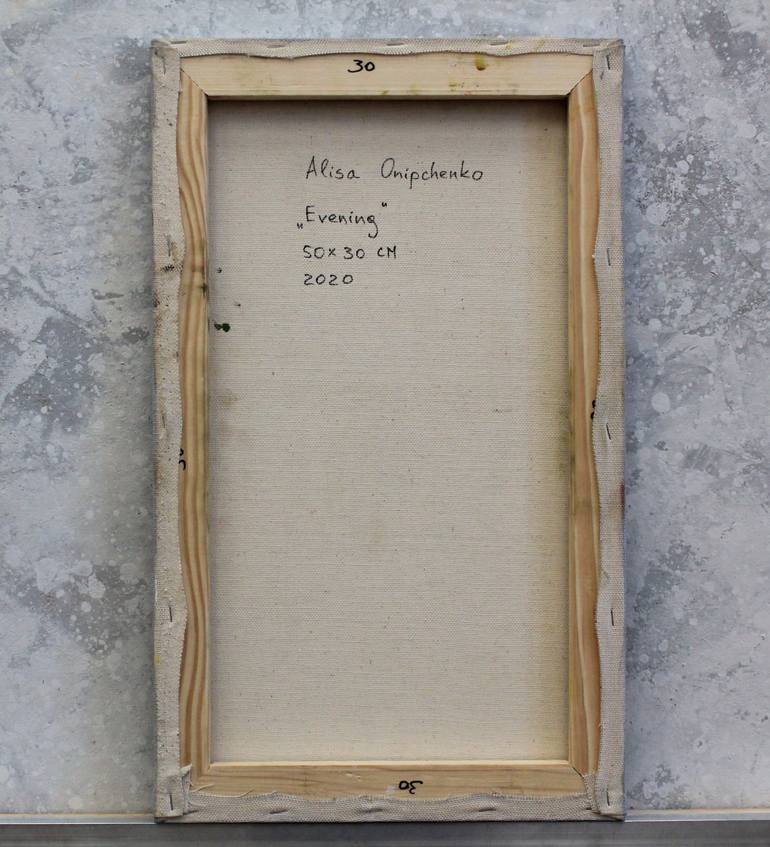 30
Alisa Onipchenko
„Evening“
50x30 CM
2020
30